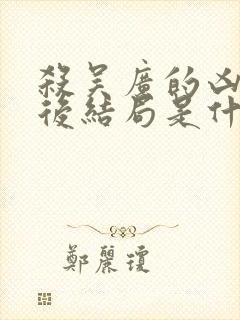 殺吳廣的凶
後結局是什
鄭麗瓊